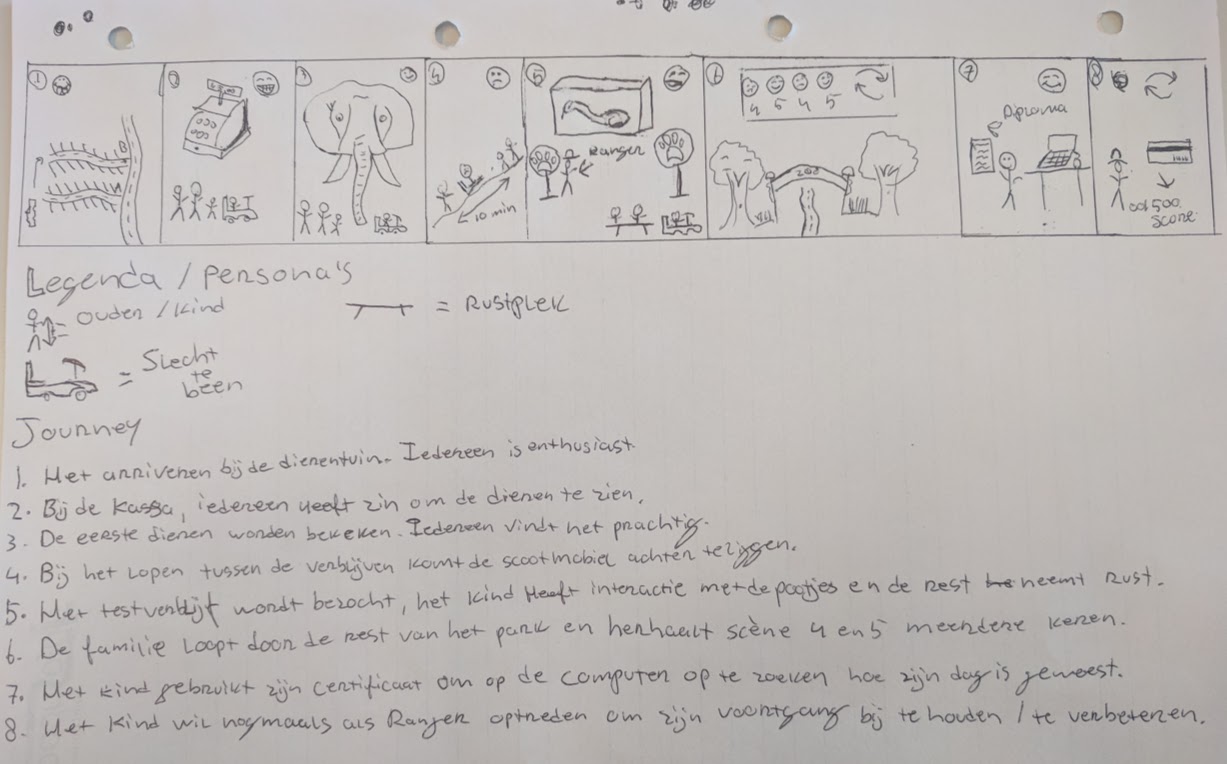 1
2
3
4
5
6
7
8
10 min
Ranger
4 5 4 5
ZOO
Diploma
score
Legenda / Persona's
= Ouder / Kind
= Rustplek
= Slecht
te
been
Journey
1. Het arriveren bij de dierentuin. Iedereen is enthusiast.
2. Bij de kassa, iedereen heeft zin om de dieren te zien.
3. De eerste dieren worden bekeken. Iedereen vindt het prachtig.
4. Bij het lopen tussen de verblijven komt de scootmobiel achter te liggen.
5. Het testverblijf wordt bezocht, het kind heeft interactie met de pootjes en de rest neemt rust.
6. De familie loopt door de rest van het park en herhaalt scène 4 en 5 meerdere keren.
7. Het kind gebruikt zijn certificaat om op de computer op te zoeken hoe zijn dag is geweest.
8. Het kind wil nogmaals als Ranger optreden om zijn voortgang bij te houden / te verbeteren.